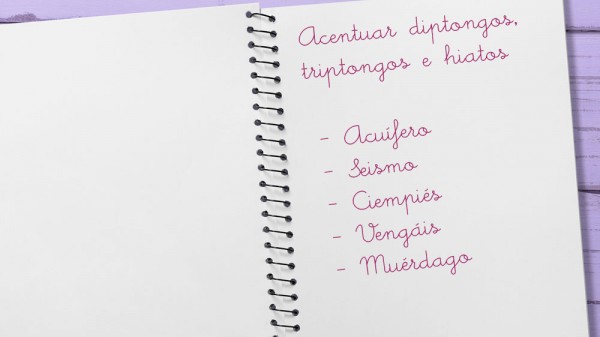 Acentuar diptongos,
triptongos e hiatos
- Acuífero
- Seismo
- Ciempiés
- Vengáis
- Muérdago